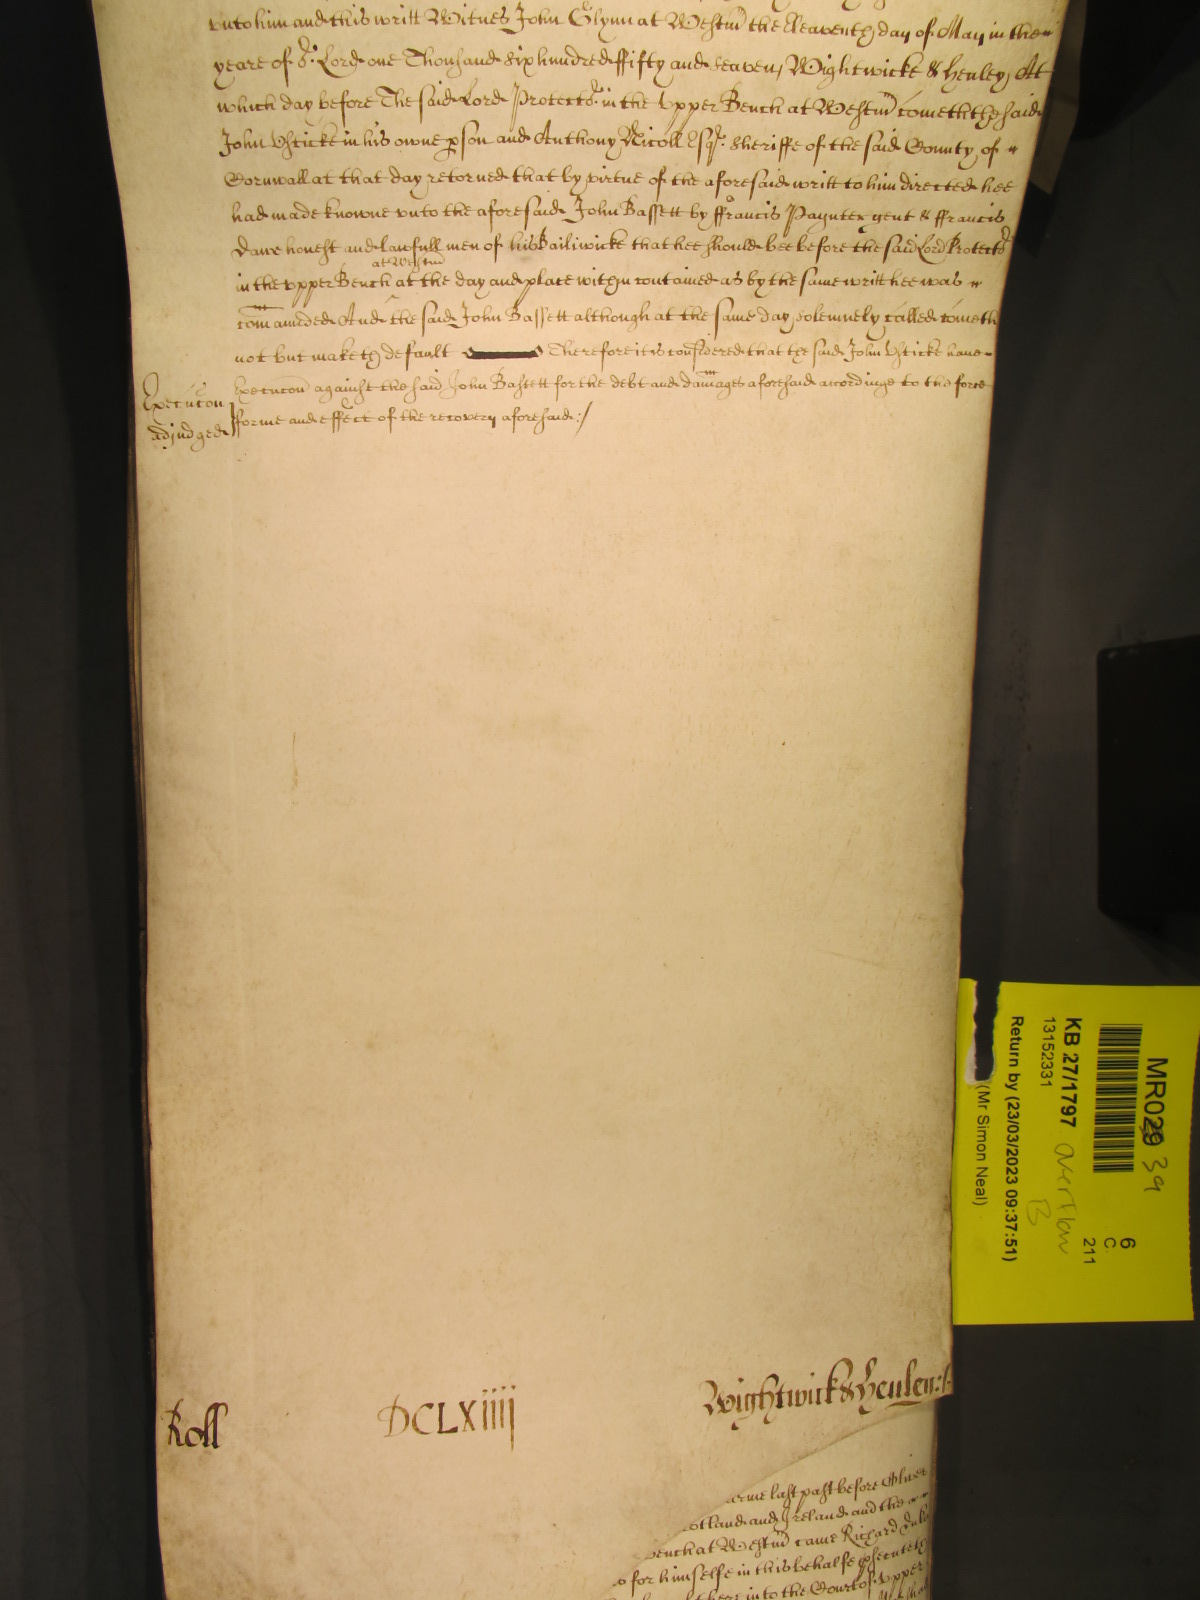 vnto him and this writt Witnes John Glynn at Westm̃ the Eleaventh day of May in the
yeare of oʳ Lord one Thousand six hundred ffifty and seaven, Wightwicke & Henley, At
which day before The said Lord Protectoʳ in the vpper Bench at Westm̃ comethth said
John Vsticke in his owne pson and Anthony Nicoll Esqʳ Sheriffe of the said County of
Cornwall at that day retorned that by virtue of the aforesaid writt to him directed hee
had made knowne vnto the aforesaid John Bassett by ffrancis Paynter gent & ffrancis
honest and lawfull men of his Bailiwicke that hee should bee before the said Lord Protectoʳ
at Westm̃
in the vpper Bench at the day and place within contained as by the same writt hee was
com̃amded And the said John Bassett although at the same day solemnely called cometh
not but maketh default Therefore it is considered that the said John Vsticke have
Execucõn against the said John Bassett for the debt and dam̃ages aforesaid accordinge to the force
forme and effect of the recovery aforesaid:/
Execucõn
adjudged
MR029 39
6
C
211
KB 27/1797 overflow
B
13152331
Return by (23/03/2023 09:37:51)
(Mr Simon Neal)
Roll DCLXiiii Wightwick & Henley:/
arme last past before Oliver
otland and Ireland and the
bench at Westm̃ came Richard
o for himselfe in this behalfe psecuteth
there into the Court of vpper